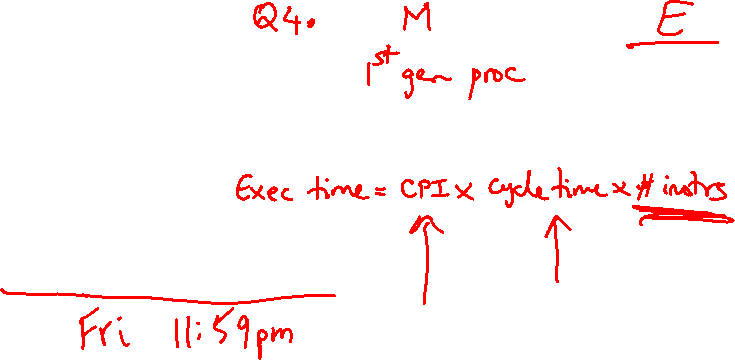 Q4. M E
1st gen proc
Exec time = CPI x Cycle time x # instrs
Fri 11:59pm